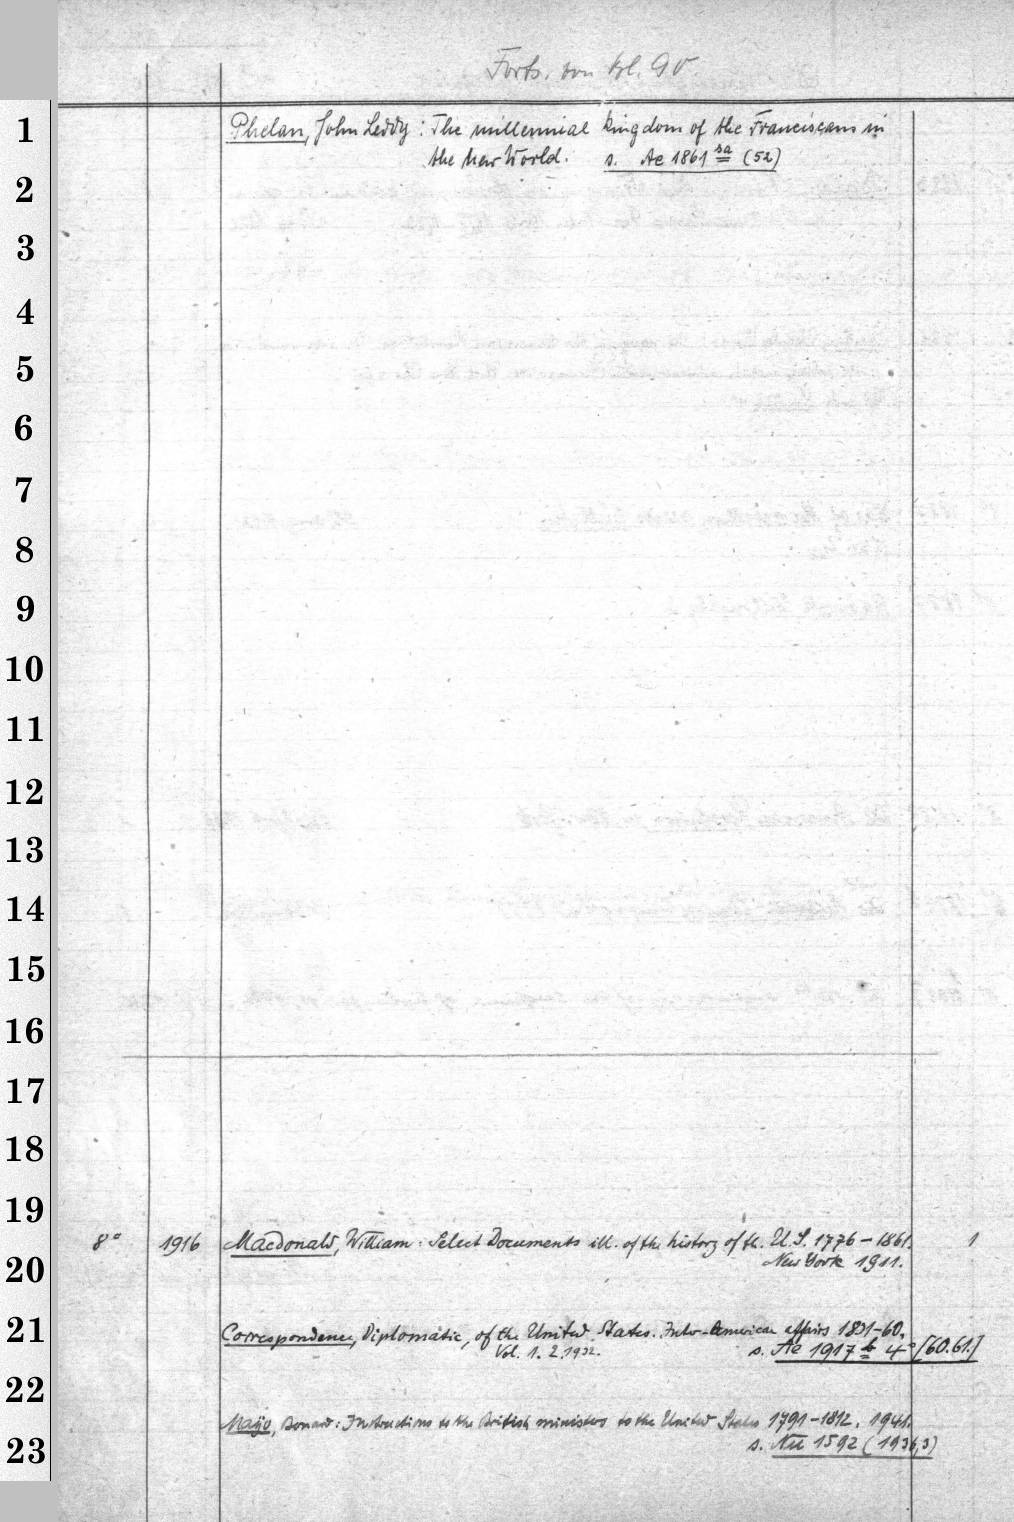 Forts. von Bl. 90.
1
Phelan, John Leddy: The millennial kingdom of the Franciscans in
the New World. s. Ae 1861 sa (52)
2
3
4
5
6
7
8
9
10
11
12
13
14
15
16
17
18
19
8° 1916 Macdonald, William: Select Documents ill. of the history of th. U.S. 1776-1861. 1
New York 1911.
20
21
Correspondence, Diplomatic, of the United States. Inter-American affairs 1831-60.
Vol. 1. 2. 1932. s. Ae 1917 4° [60.61.]
22
Mayo, Bernard: Instructions to the British ministers to the United States 1791-1812. 1941.
s. 1592 (1936,3)
23